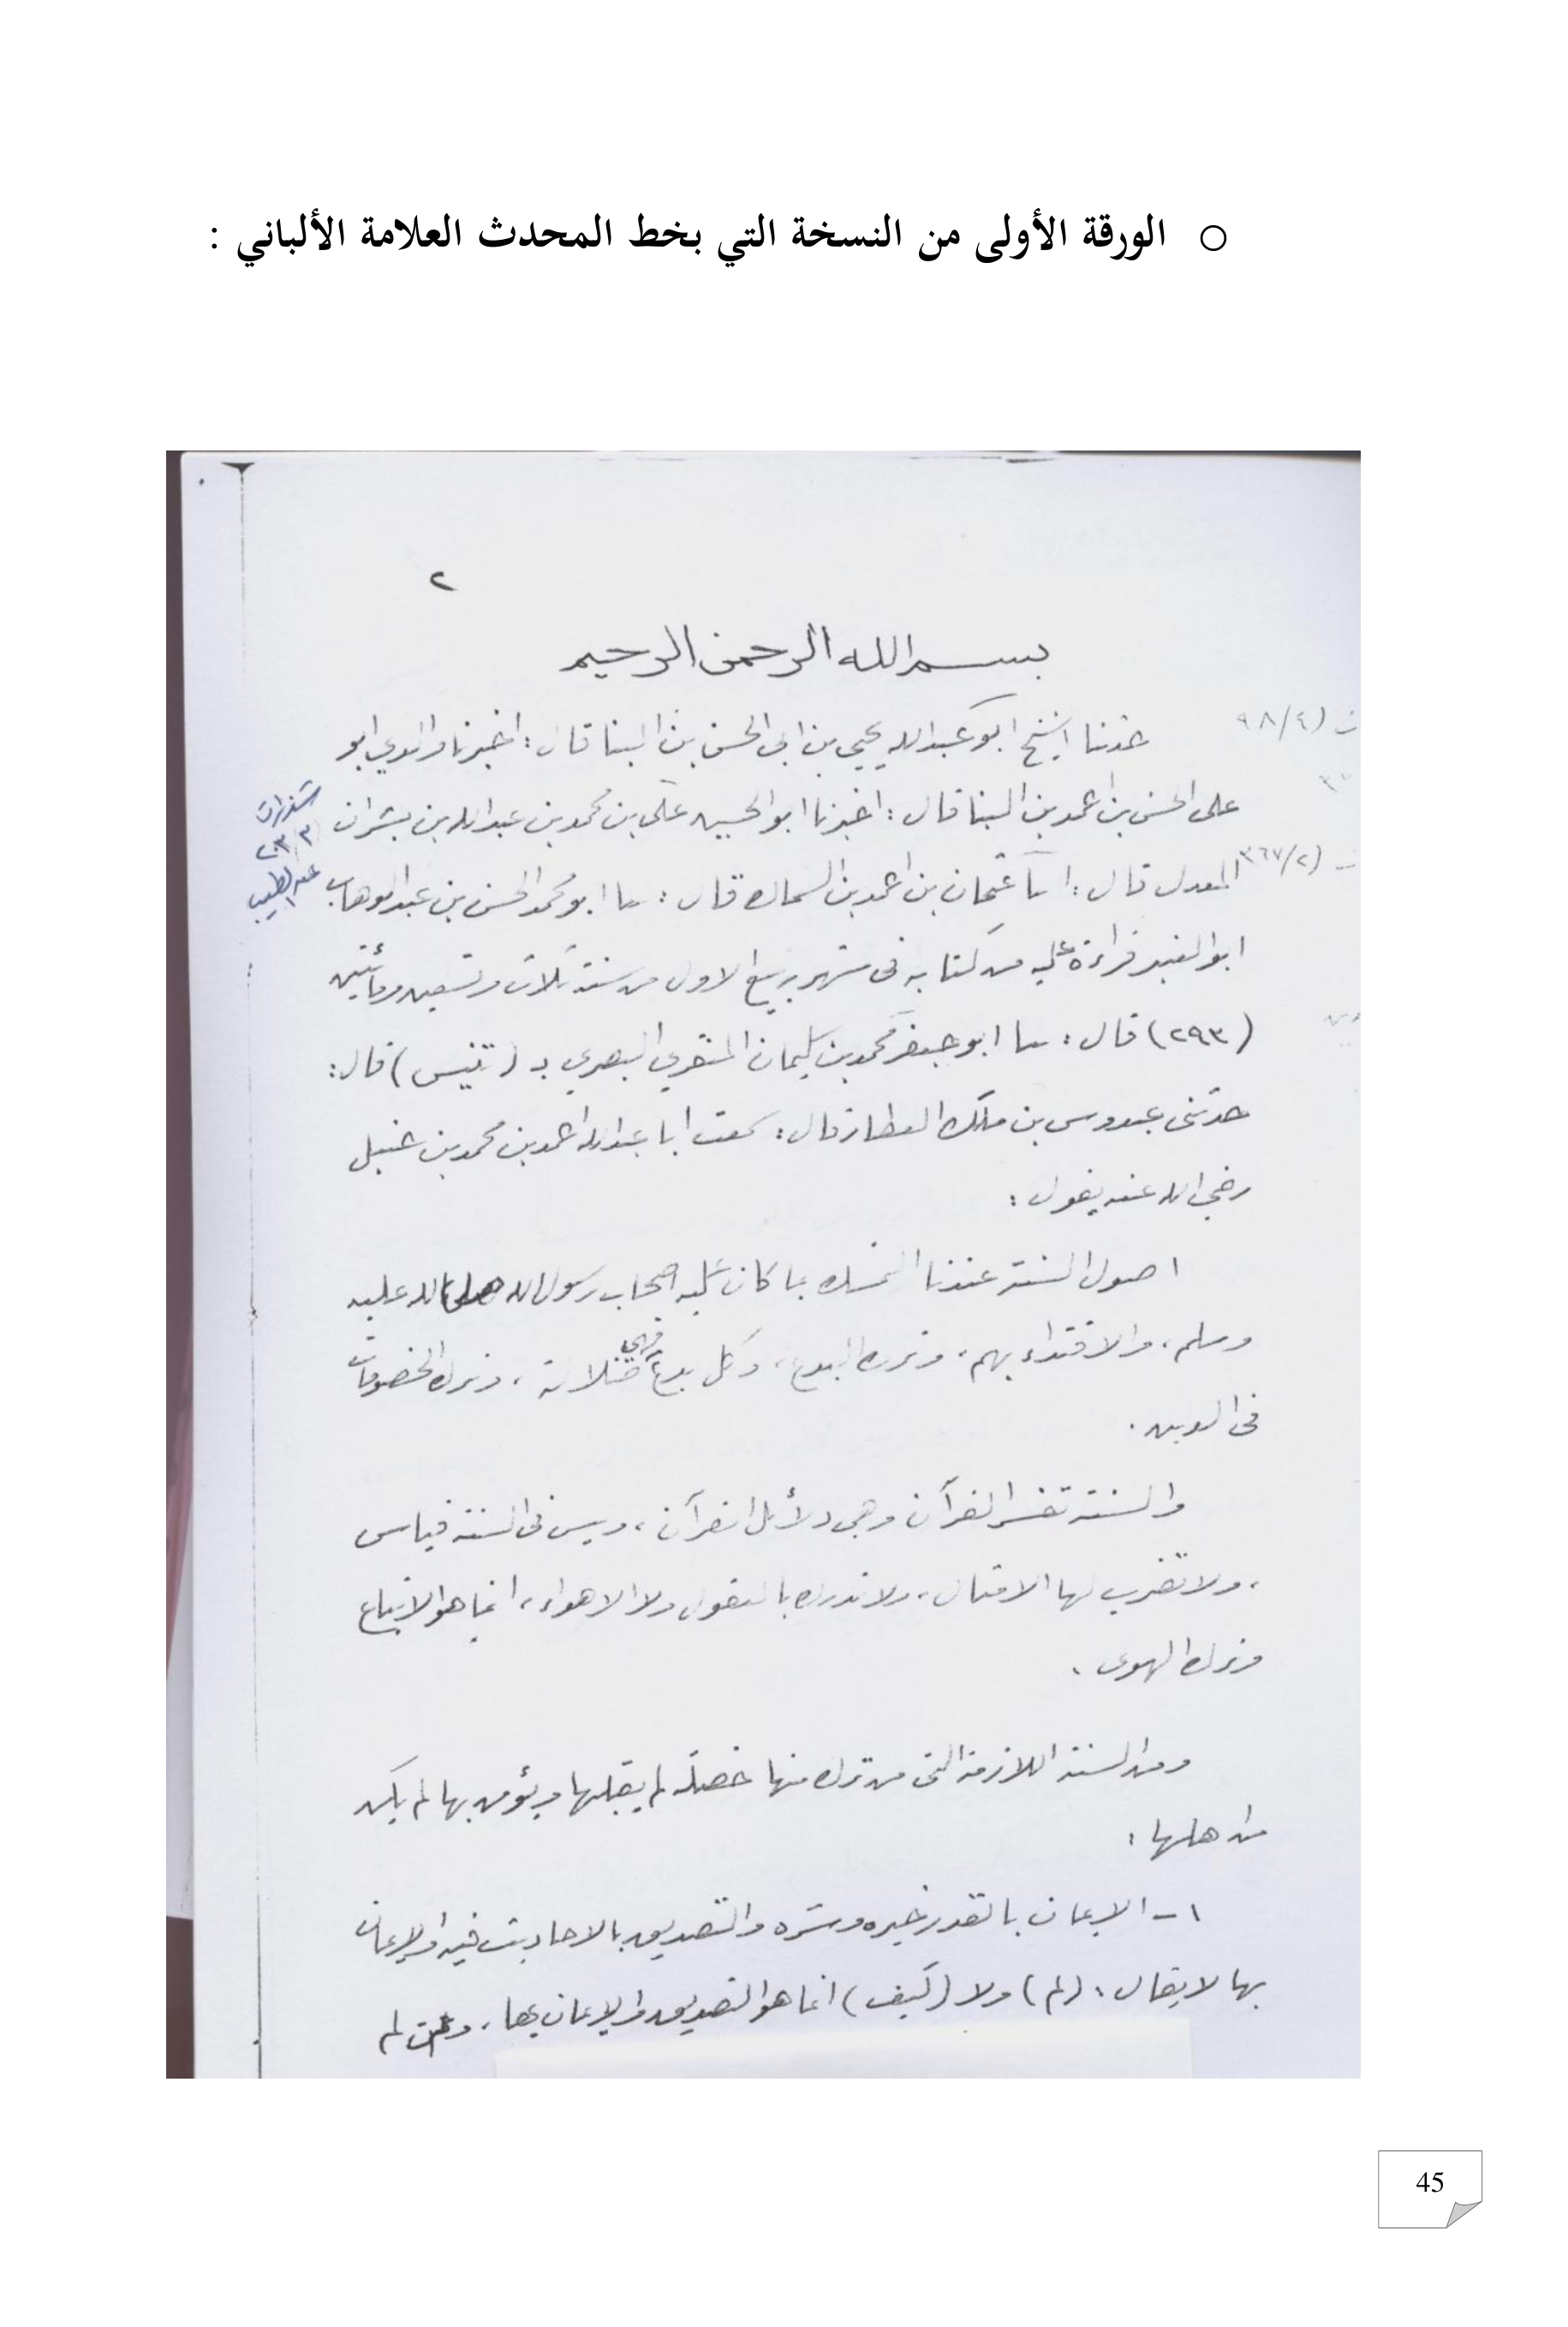 ○ الورقة الأولى من النسخة التي بخط المحدث العلامة الألباني :
٢
بسم الله الرحمن الرحيم
حدثنا الشيخ ابو عبدالله يحيى بن ابي الحسن بن البنا قال : اخبرنا والدي ابو
على الحسن بن احمد بن البنا قال : اخبرنا ابو الحسين على بن محمد بن عبدالله بن بشران
المعدل قال : انا عثمان بن احمد بن السماك قال : نا ابو محمد الحسن بن عبدالوهاب
ابو العنبر قراءة عليه من كتابه فى شهر ربيع الاول من سنة ثلاث وتسعين ومائتين
(٢٩٣) قال : نا ابو جعفر محمد بن سليمان المنقري البصري بـ (تنيس) قال :
حدثنى عبدوس بن ملك العطار قال : سمعت ابا عبدالله احمد بن محمد بن حنبل
رضي الله عنه يقول :
اصول السنة عندنا التمسك بما كان عليه اصحاب رسول الله صلى الله عليه
وسلم ، والاقتداء بهم ، وترك البدع ، وكل بدعة فهي ضلالة ، وترك الخصومات
فى الدين .
والسنة تفسر القرآن وهى دلائل القرآن ، وليس فى السنة قياس
، ولا تضرب لها الامثال ، ولا تدرك بالعقول ولا الاهواء ، انما هو الاتباع
وترك الهوى .
ومن السنة اللازمة التى من ترك منها خصلة لم يقبلها ويؤمن بها لم يكن
من اهلها :
١- الإيمان بالقدر خيره وشره والتصديق بالاحاديث فيه والإيمان
بها لا يقال : (لم) ولا (كيف) انما هو التصديق والإيمان بها ، ومن لم
(٩٨/٤
(٣٦٧/٢
شذرات
٢٠٣/٣
45